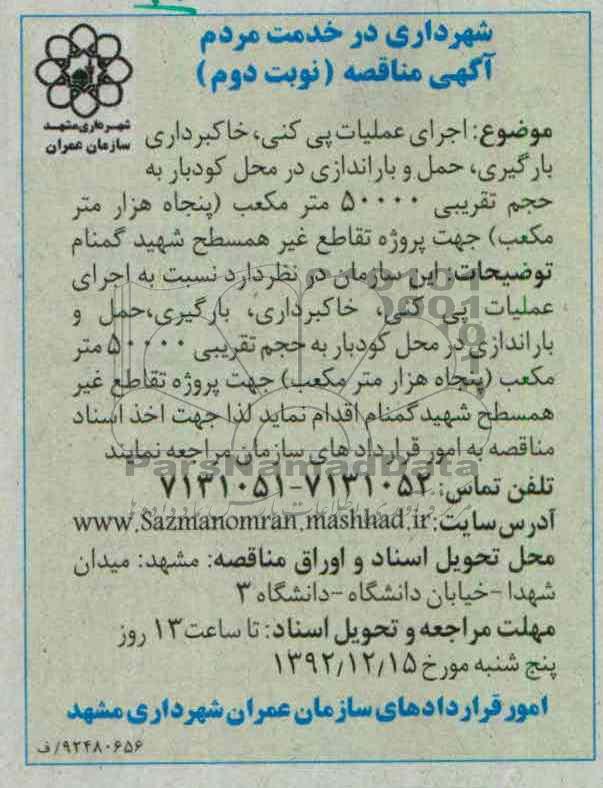 شهرداری در خدمت مردم
آگهی مناقصه (نوبت دوم)
شهرداری مشهد
سازمان عمران
موضوع: اجرای عملیات پی کنی، خاکبرداری
بارگیری، حمل و باراندازی در محل کودبار به
حجم تقریبی ۵۰۰۰۰ متر مکعب (پنجاه هزار متر
مکعب) جهت پروژه تقاطع غیر همسطح شهید گمنام
توضیحات: این سازمان در نظر دارد نسبت به اجرای
عملیات پی کنی، خاکبرداری، بارگیری،حمل و
باراندازی در محل کودبار به حجم تقریبی ۵۰۰۰۰ متر
مکعب (پنجاه هزار متر مکعب) جهت پروژه تقاطع غیر
همسطح شهید گمنام اقدام نماید لذا جهت اخذ اسناد
مناقصه به امور قرارداد های سازمان مراجعه نمایند
ParsNamadData
تلفن تماس: ۷۱۳۱۰۵۲-۷۱۳۱۰۵۱
آدرس سایت: www.Sazmanomran.mashhad.ir
محل تحویل اسناد و اوراق مناقصه: مشهد: میدان
شهدا -خیابان دانشگاه -دانشگاه ۳
مهلت مراجعه و تحویل اسناد: تا ساعت ۱۳ روز
پنج شنبه مورخ ۱۳۹۲/۱۲/۱۵
امور قراردادهای سازمان عمران شهرداری مشهد
۹۲۴۸۰۶۵۶/ف